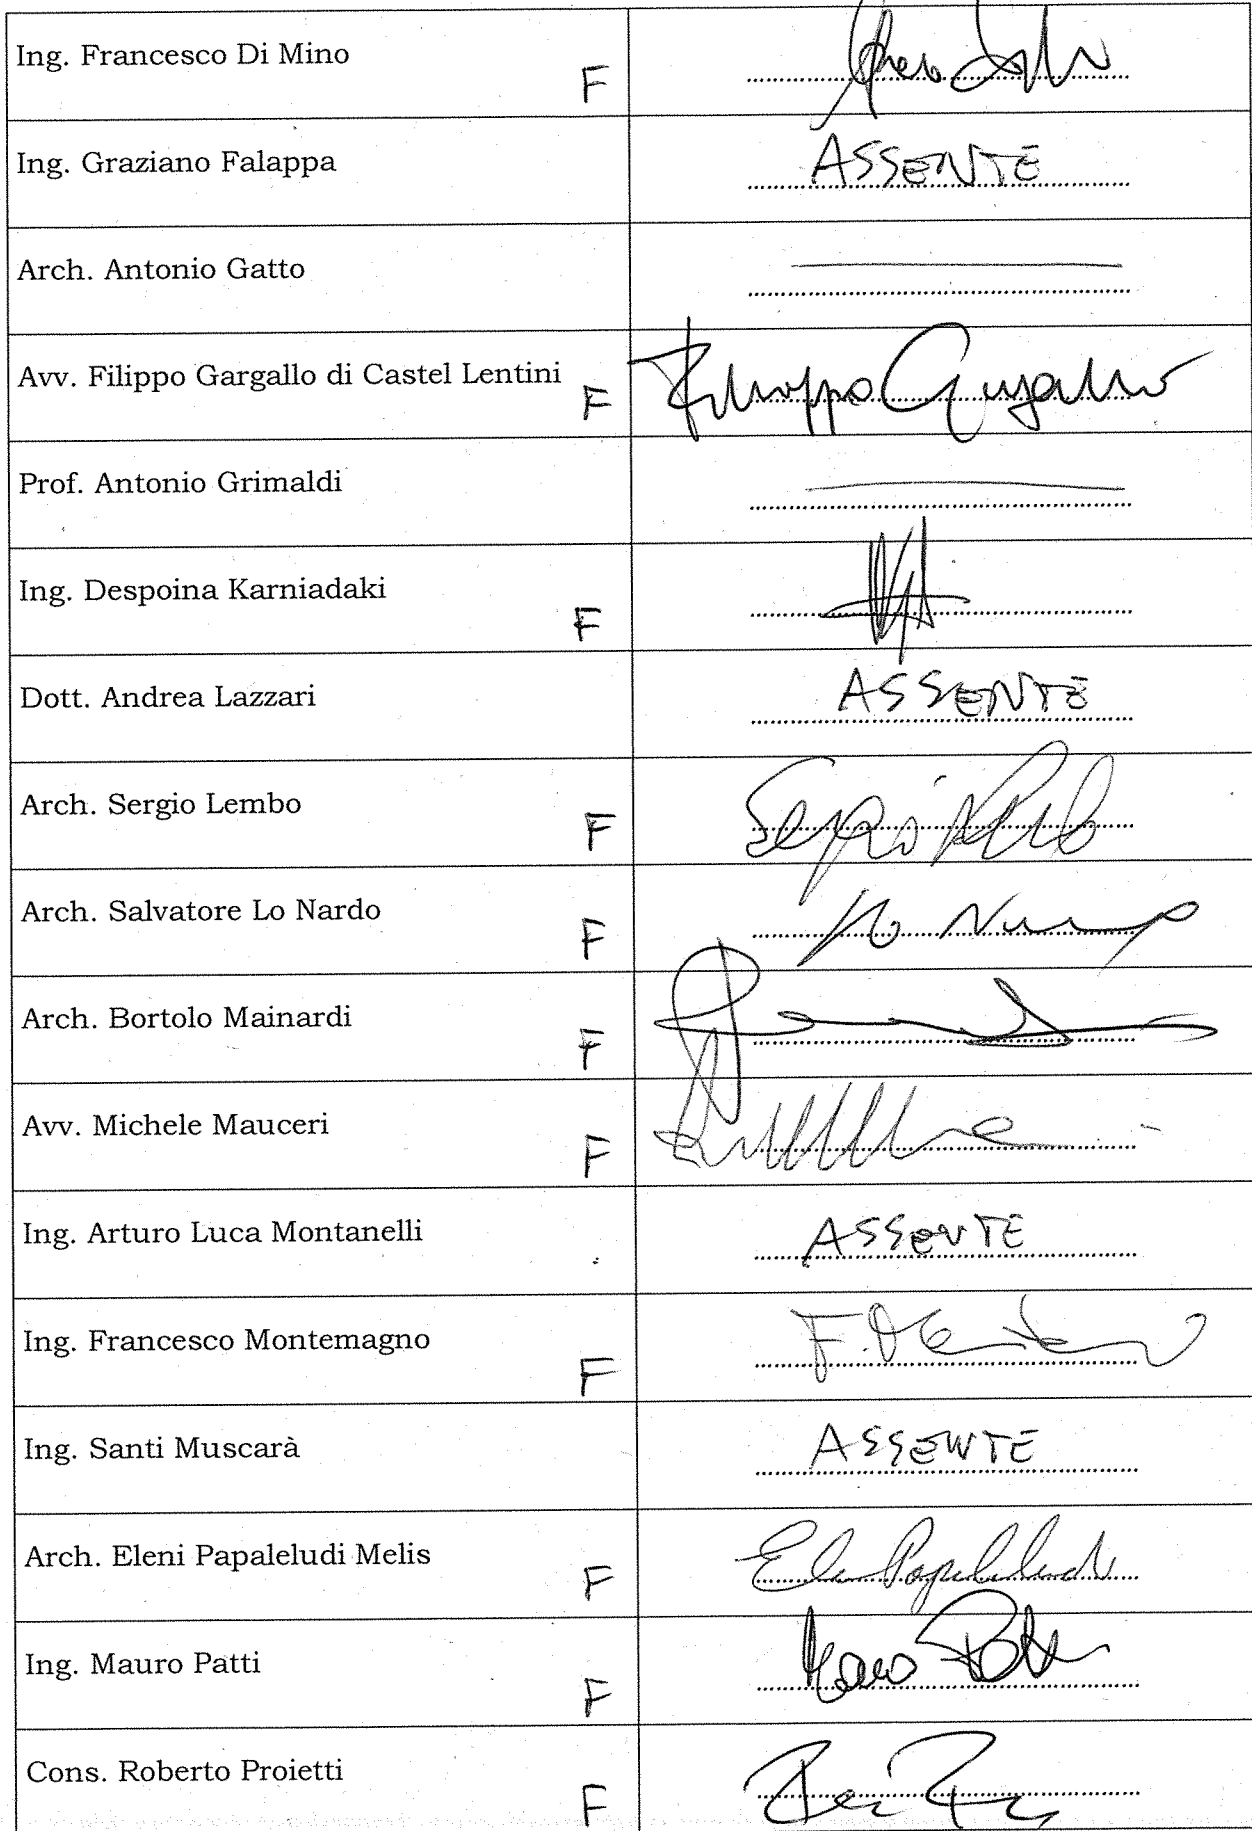 Ing. Francesco Di Mino F
Ing. Graziano Falappa ASSENTE
Arch. Antonio Gatto
Avv. Filippo Gargallo di Castel Lentini F Filippo Gargallo
Prof. Antonio Grimaldi
Ing. Despoina Karniadaki F
Dott. Andrea Lazzari ASSENTE
Arch. Sergio Lembo F Sergio Lembo
Arch. Salvatore Lo Nardo F Lo Nardo
Arch. Bortolo Mainardi F
Avv. Michele Mauceri F
Ing. Arturo Luca Montanelli ASSENTE
Ing. Francesco Montemagno F
Ing. Santi Muscarà ASSENTE
Arch. Eleni Papaleludi Melis F Eleni Papaleludi
Ing. Mauro Patti F Mauro Patti
Cons. Roberto Proietti F